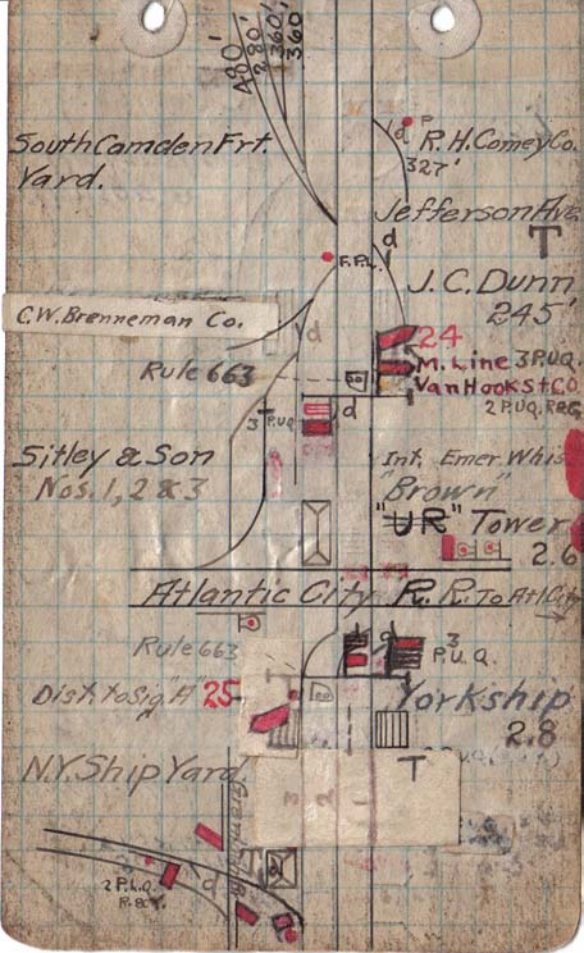 480'
280'
360'
360
South Camden Frt.
Yard.
d
P
R. H. Comey Co.
327'
Jefferson Ave.
T
d
F.P.L.
J. C. Dunn
245'
C.W. Brenneman Co.
d
24
Rule 663
M. Line 3 P.U.Q.
Van Hook St CO.
2 P.U.Q. REC.
3 P.U.Q.
d
Sitley & Son
Nos. 1, 2 & 3
Int. Emer. Whis
"Brown"
"UR" Tower
2.6
Atlantic City R. R. To Atl City
Rule 663
3
P.U.Q.
Dist. to Sig. "A" 25
Yorkship
2.8
N.Y. Ship Yard.
T
3 2 1
2 P.L.Q.
d